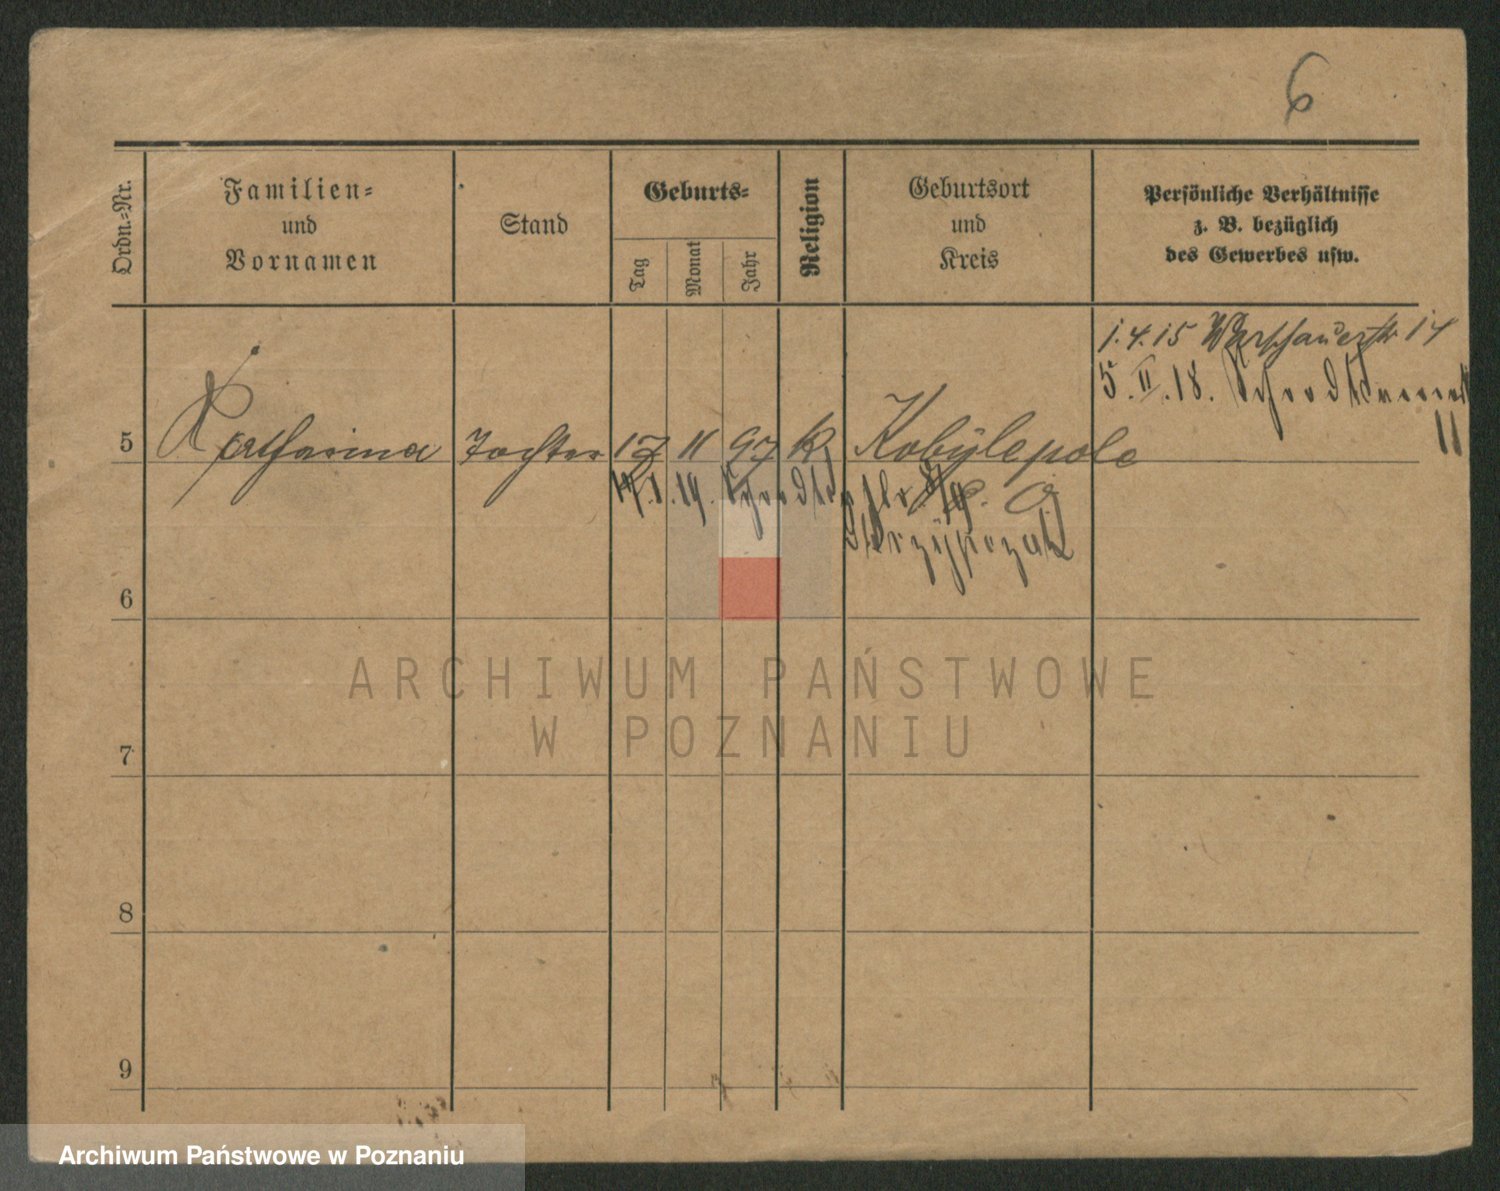 6
Ordn.-Nr.
Familien-
und
Vornamen
Stand
Geburts-
Tag
Monat
Jahr
Religion
Geburtsort
und
Kreis
Persönliche Verhältnisse
z. B. bezüglich
des Gewerbes usw.
1.4.15 Warschauerstr 14
5.II.18.
11
5 Katharina Tochter 17 11 97 K Kobylepole
P. O.
6
7
8
9
ARCHIWUM PAŃSTWOWE
W POZNANIU
Archiwum Państwowe w Poznaniu